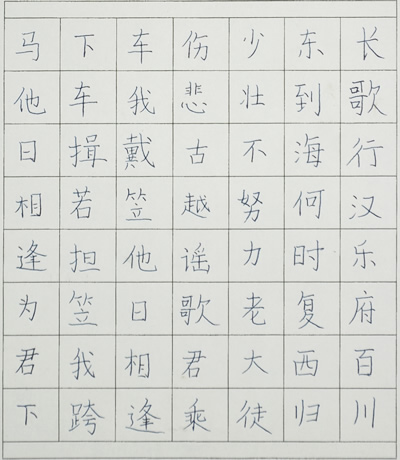 长歌行汉乐府百川
东到海何时复西归
少壮不努力老大徒
伤悲古越谣歌君乘
车我戴笠他日相逢
下车揖若担笠我跨
马他日相逢为君下